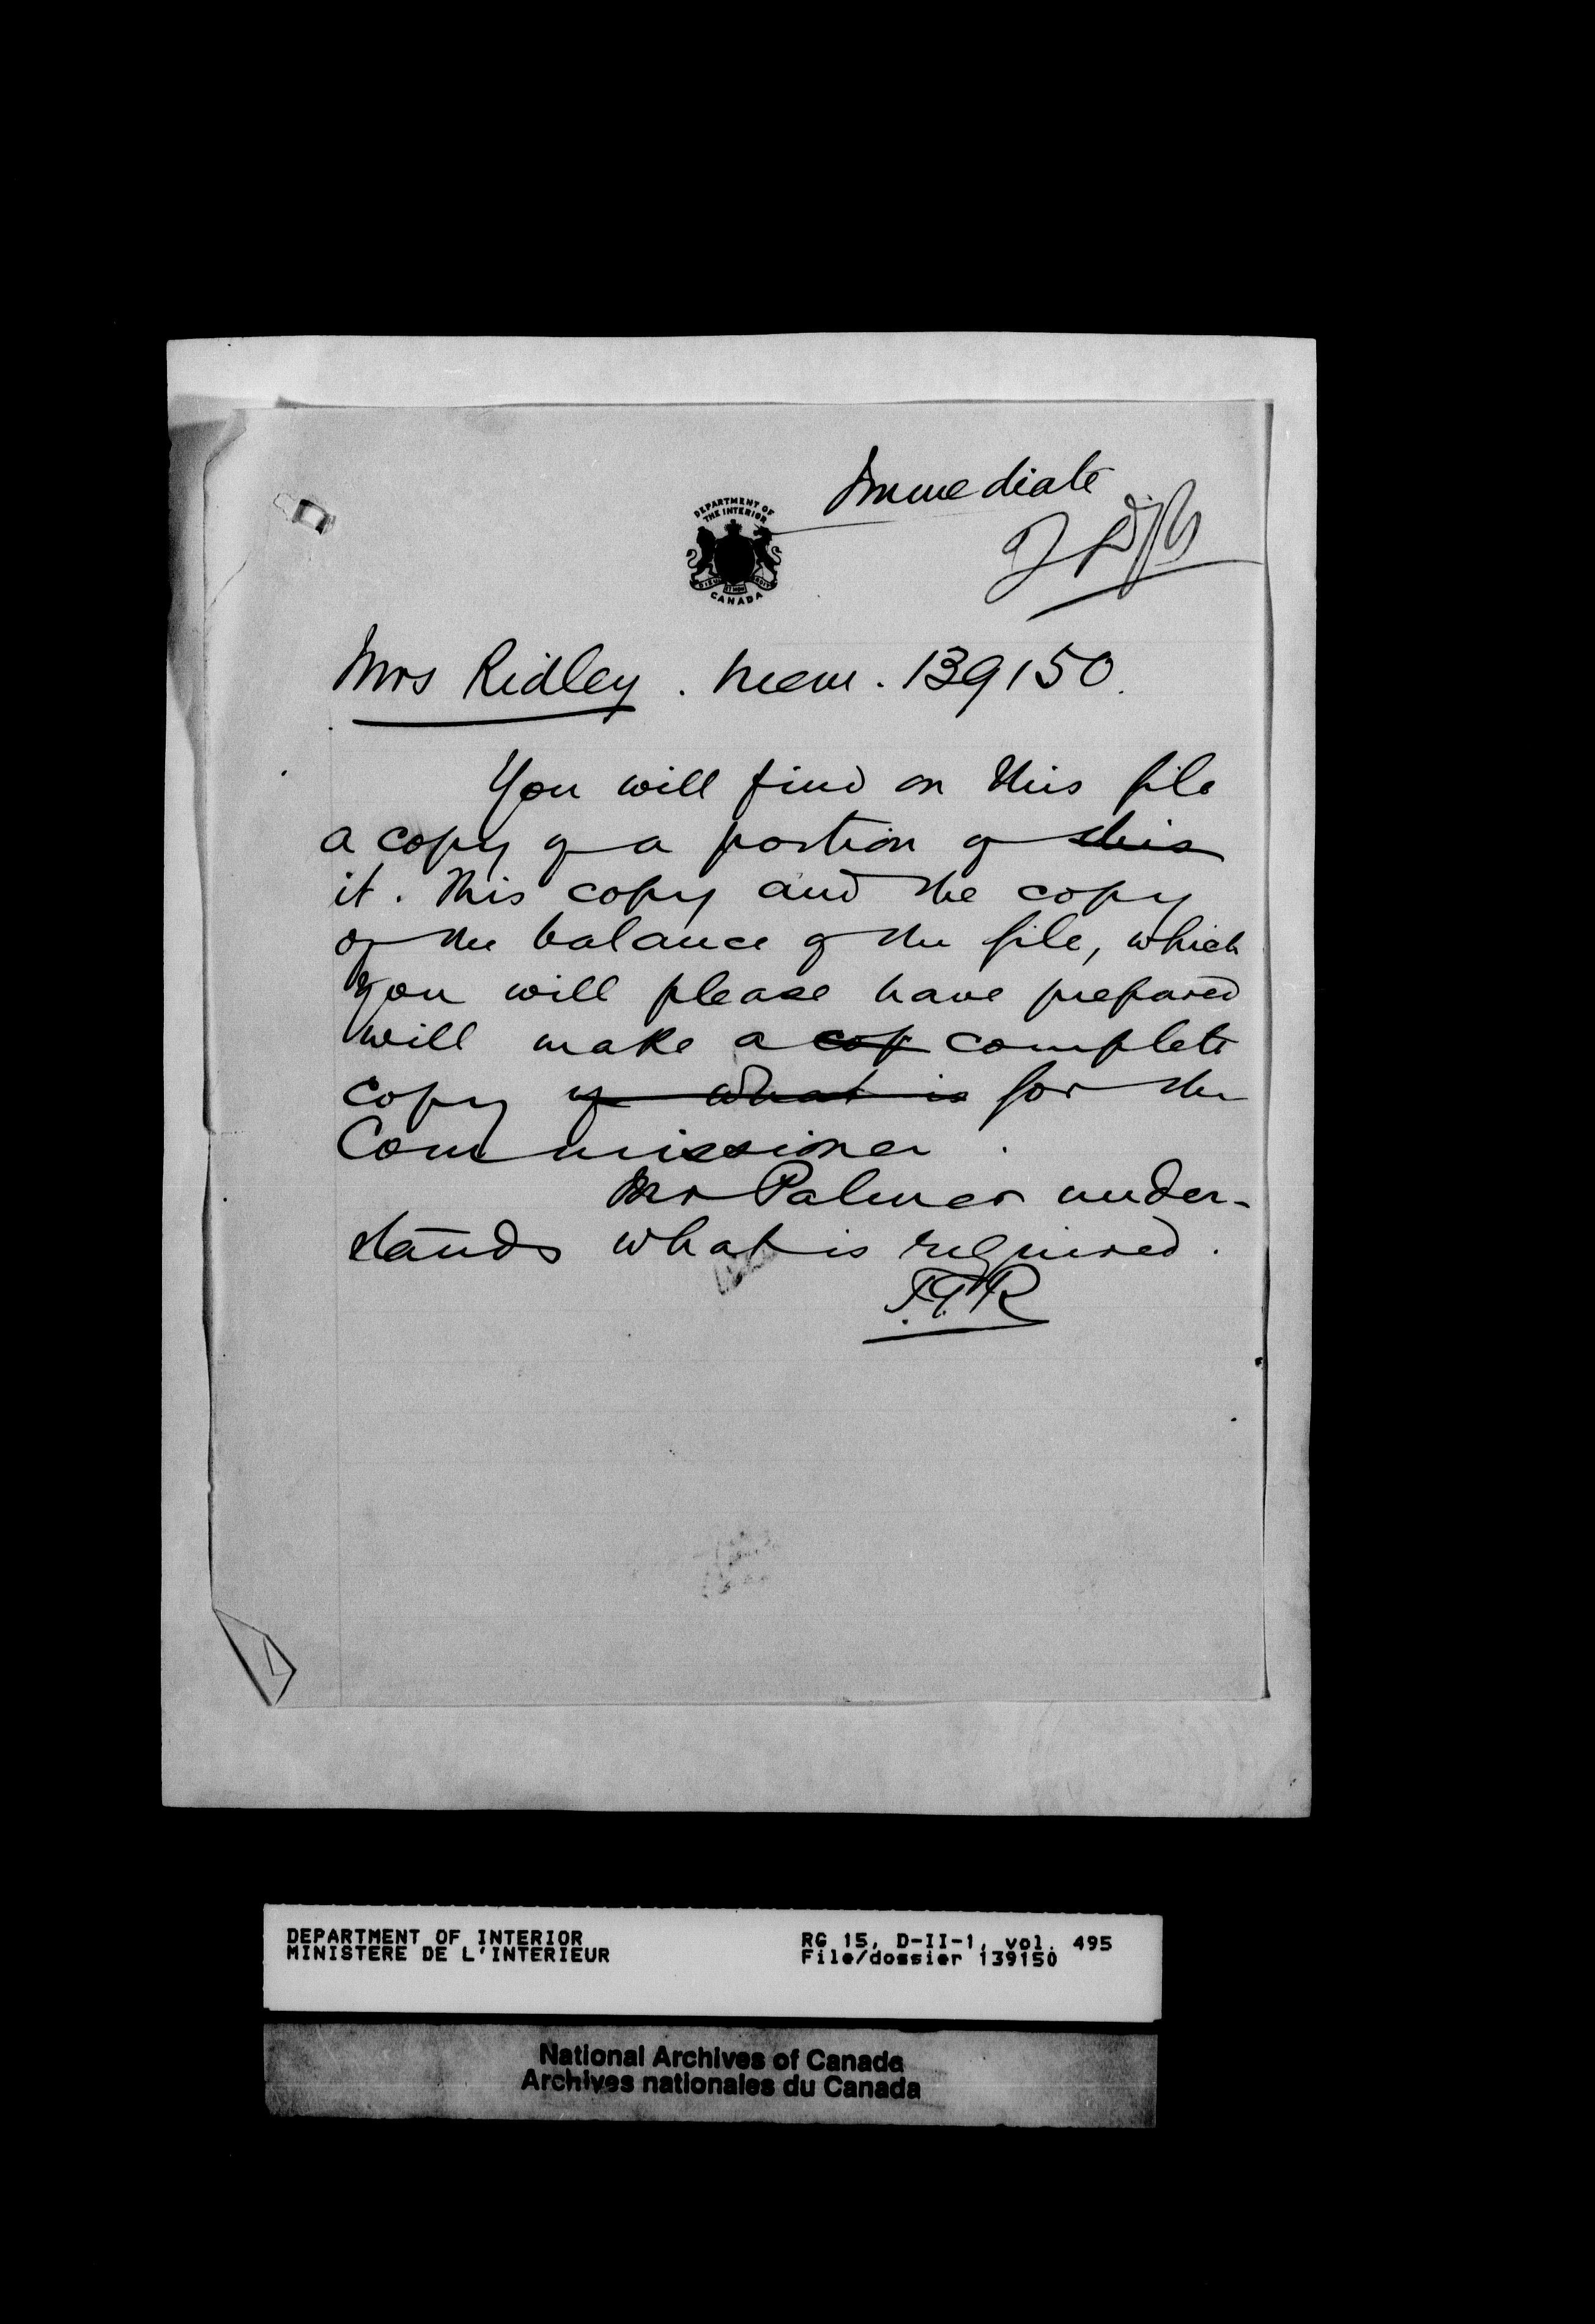 Immediate
DEPARTMENT OF
THE INTERIOR
CANADA
Mrs Ridley. Mem. 139150.
You will find on this file
a copy of a portion of this
it. This copy and the copy
of the balance of the file, which
you will please have prepared
will make a cop complete
copy of what is for the
Commissioner.
Mr Palmer under-
stands what is required.
DEPARTMENT OF INTERIOR
MINISTERE DE L'INTERIEUR
RG 15, D-II-1, vol. 495
File/dossier 139150
National Archives of Canada
Archives nationales du Canada